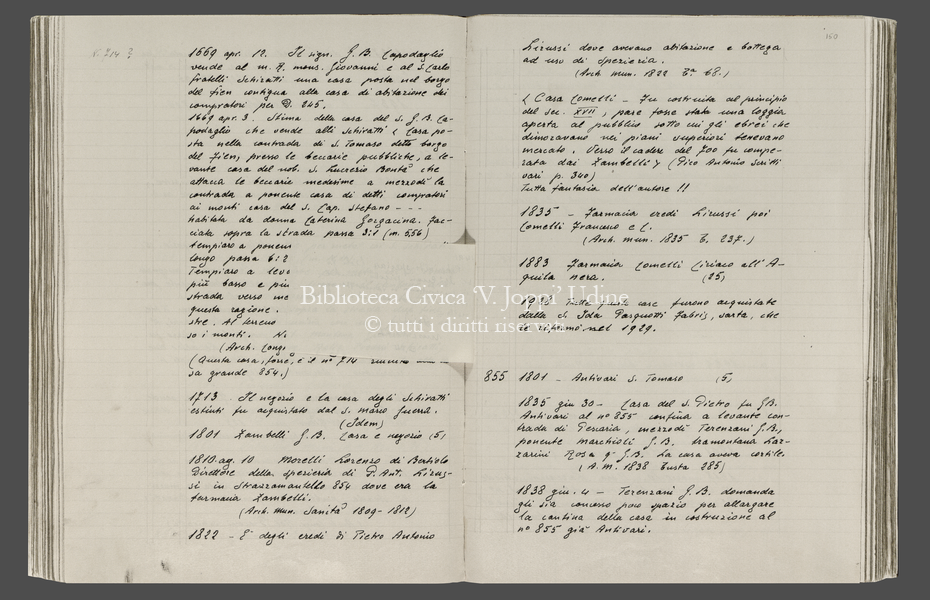 v. 714 ?
1669 apr. 12. Il sign. G. B. Capodaglio
vende al m. R. mons. Giovanni e al S. Carlo
fratelli Schiratti una casa posta nel borgo
del fien contigua alla casa di abitazione dei
compratori per D. 245.
1669 apr. 3. Stima della casa del S. G. B. Ca-
podaglio che vende alli Schiratti < Casa po-
sta nella contrada di S. Tomaso detto borgo
del Fien, presso le beccarie pubbliche, a le-
vante casa del nob. S. Lucrezio Bontà che
attacca le beccarie medesime a mezzodì la
contrada a ponente casa di detti compratori
ai monti casa del S. Cap. Stefano ---
habitata da donna Caterina Gorgacina. Fac-
ciata sopra la strada passa 3:1 (m. 5,56)
tempiaro a ponen
longo passa 6:2
Tempiaro a leva
più basso e piu
strada verso me
questa ragione.
stre. Al terreno
so i monti. N.
(Arch. Cong
(Questa casa, forse, è il nº 714
sa grande 854.)
1713 Il negozio e la casa degli Schiratti
estinti fu acquistato dal S. Mario Guerra.
(Idem)
1801 Zambelli G. B. Casa e negozio (5)
1810. ag. 10 Morelli Lorenzo di Bertiolo
Direttore della spezieria di P. Ant. Lirus-
si in Strazzamantello 854 dove era la
farmacia Zambelli.
(Arch. mun. Sanità 1809-1812)
1822 - È degli eredi di Pietro Antonio
160
Lirussi dove avevano abitazione e bottega
ad uso di spezieria.
(Arch. mun. 1822 Tª 68.)
< Casa Comelli - Fu costruita al principio
del sec. XVII, pare fosse stata una loggia
aperta al pubblico sotto cui gli ebrei che
dimoravano nei piani superiori tenevano
mercato. Verso il cadere del 700 fu compe-
rata dai Zambelli > (Pico Antonio Scritti
vari p. 340)
Tutta fantasia dell'autore !!
1835 - Farmacia eredi Lirussi poi
Comelli Francesco e C.
(Arch. mun. 1835 T. 237.)
1883 Farmacia Comelli Ciriaco all'A-
quila nera. (25)
1928 Tutte queste case furono acquistate
dalla S. Ida Pasquotti Fabris, sarta, che
le riformò nel 1929.
855 1801 - Antivari S. Tomaso (5)
1835 giu 30 - Casa del S. Pietro fu G.B.
Antivari al nº 855 confina a levante con-
trada di Pescaria, mezzodì Terenzani G.B.,
ponente Marchioli G.B. tramontana Laz-
zarini Rosa qm G.B. La casa aveva cortile.
(A. M. 1838 busta 285)
1838 giu. 4 - Terenzani G. B. domanda
gli sia concesso poco spazio per allargare
la cantina della casa in costruzione al
nº 855 già Antivari.
Biblioteca Civica 'V. Joppi' Udine
© tutti i diritti riservati